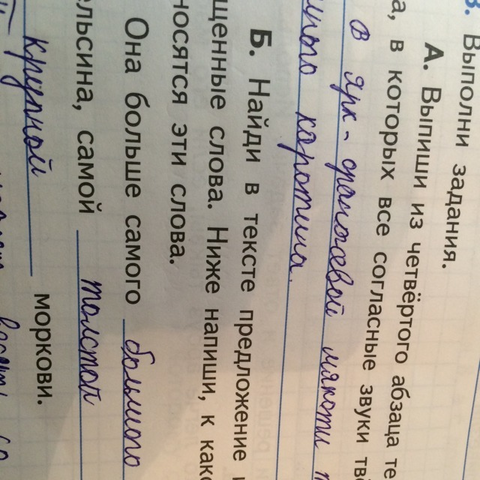 3. Выполни задания.
А. Выпиши из четвёртого абзаца те
а, в которых все согласные звуки твё
в ярк-оранжевой мякоти
каротина.
Б. Найди в тексте предложение
щенные слова. Ниже напиши, к како
носятся эти слова.
Она больше самого большого
ельсина, самой толстой
крупной моркови.